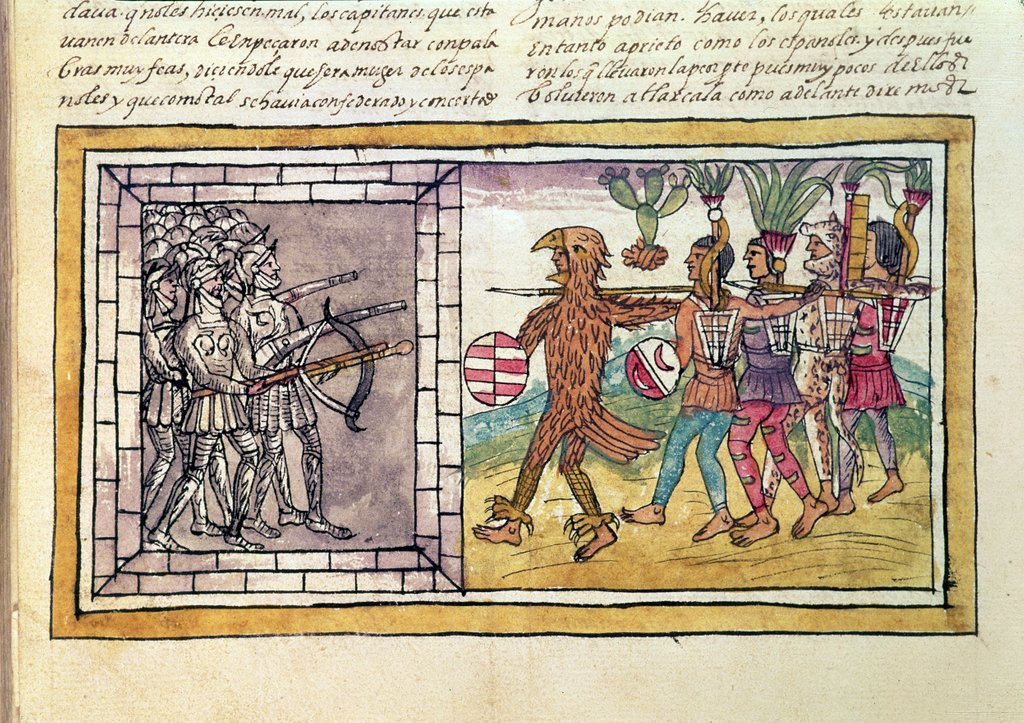 daua. q̃ no les hiciesen mal, los capitanes. que esta
uan en delantera le enpeçaron a denostar con pala
bras muy feas, diciendole que sera muger de los espa
ñoles y que como tal se hauia confederado y concertado
manos podian. hauer, los quales estauan
en tanto aprieto como los españoles. y despues fue
ron los q̃ lleuaron la peor pte pues muy pocos de ellos
boluieron a tlaxcala como adelante diremos